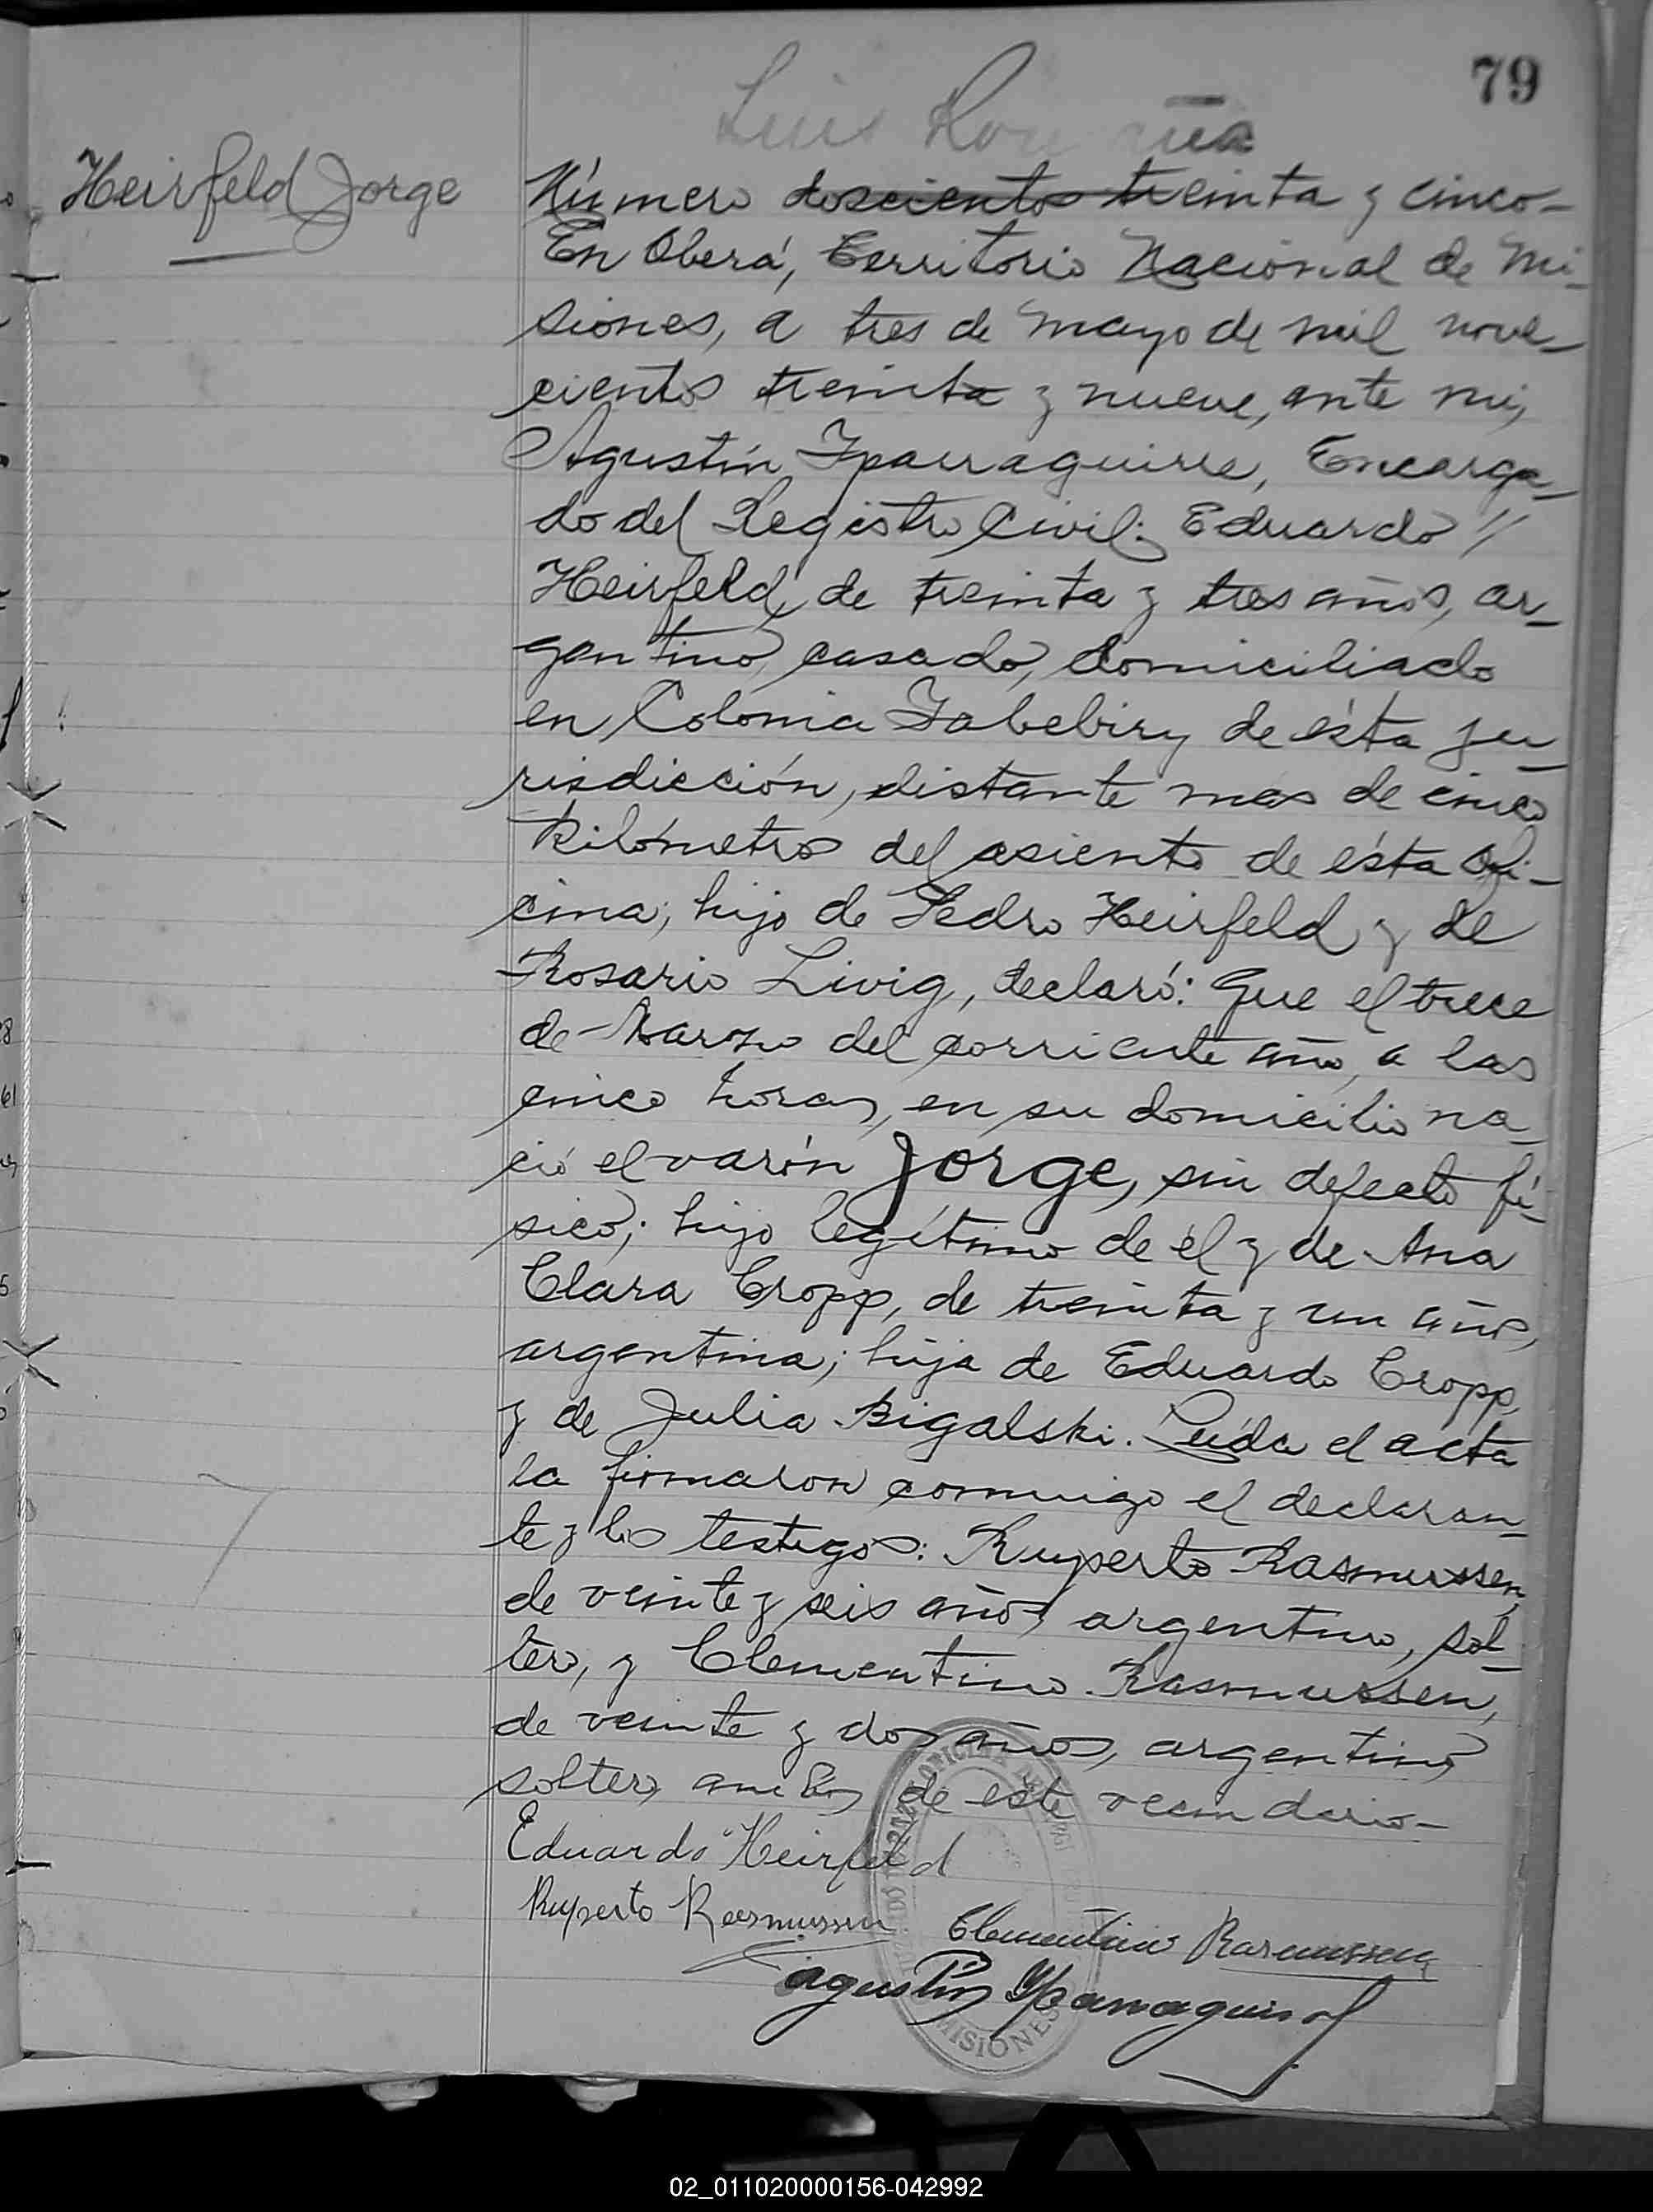 79
Luis
Heirfeld Jorge
Número doscientos treinta y cinco-
En Oberá, Territorio Nacional de Mi-
siones, a tres de Mayo de mil nove-
cientos treinta y nueve, ante mi,
Agustín Yparraguirre, Encarga-
do del Registro Civil: Eduardo //
Heirfeld, de treinta y tres años, ar-
gentino, casado, domiciliado
en Colonia Yabebiry de ésta ju-
risdicción, distante mas de cinco
kilómetros del asiento de ésta Ofi-
cina; hijo de Pedro Heirfeld y de
Rosario Livig, declaró: Que el trece
de Marzo del corriente año, a las
cinco horas, en su domicilio na-
ció el varón Jorge, sin defecto fí-
sico; hijo legítimo de él y de Ana
Clara Cropp, de treinta y un años,
argentina; hija de Eduardo Cropp
y de Julia Bigalski. Leída el acta
la firmaron conmigo el declaran-
te y los testigos: Ruperto Rasmussen,
de veinte y seis años, argentino, sol-
tero, y Clementino Rasmussen,
de veinte y dos años, argentino,
soltero, ambos de este vecindario-
Eduardo Heirfeld
Ruperto Rasmussen Clementino Rasmussen
Agustín Yparraguirre
MISIONES
02_011020000156-042992